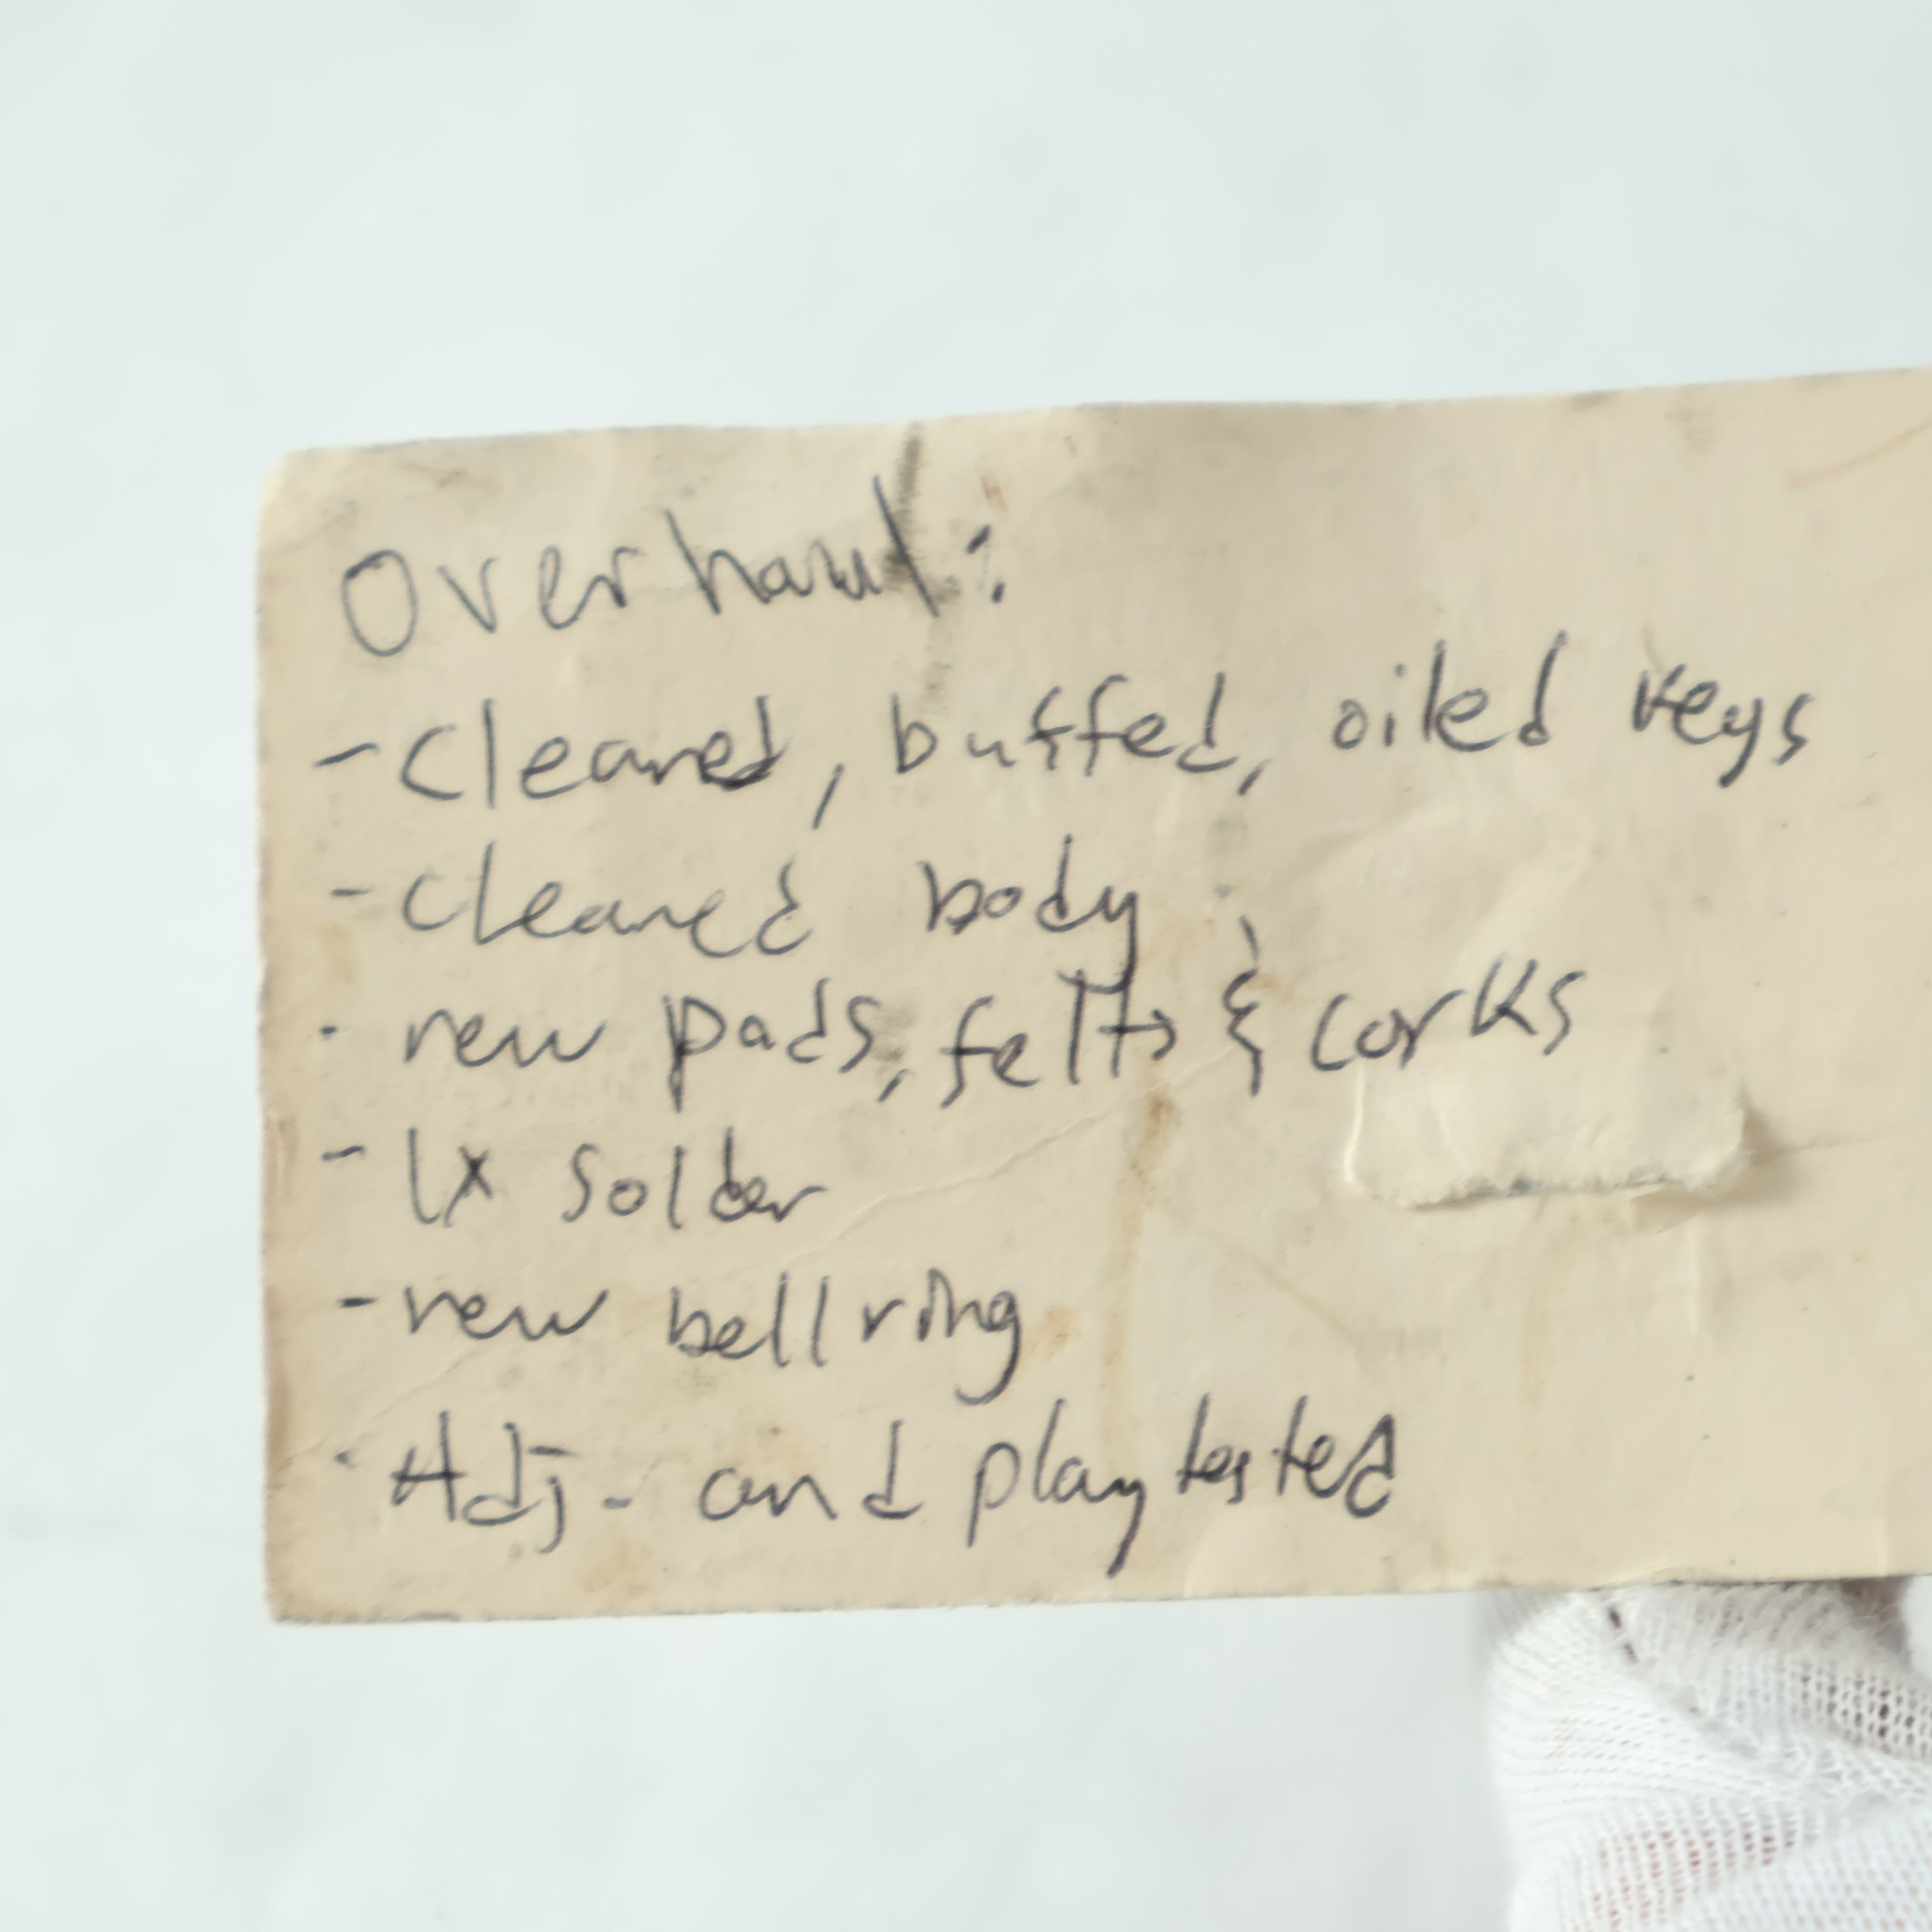 Overhaul:
- Cleaned, buffed, oiled keys
- Cleaned body
- new pads, felts & corks
- 1x solder
- new bell ring
- Adj - and play tested